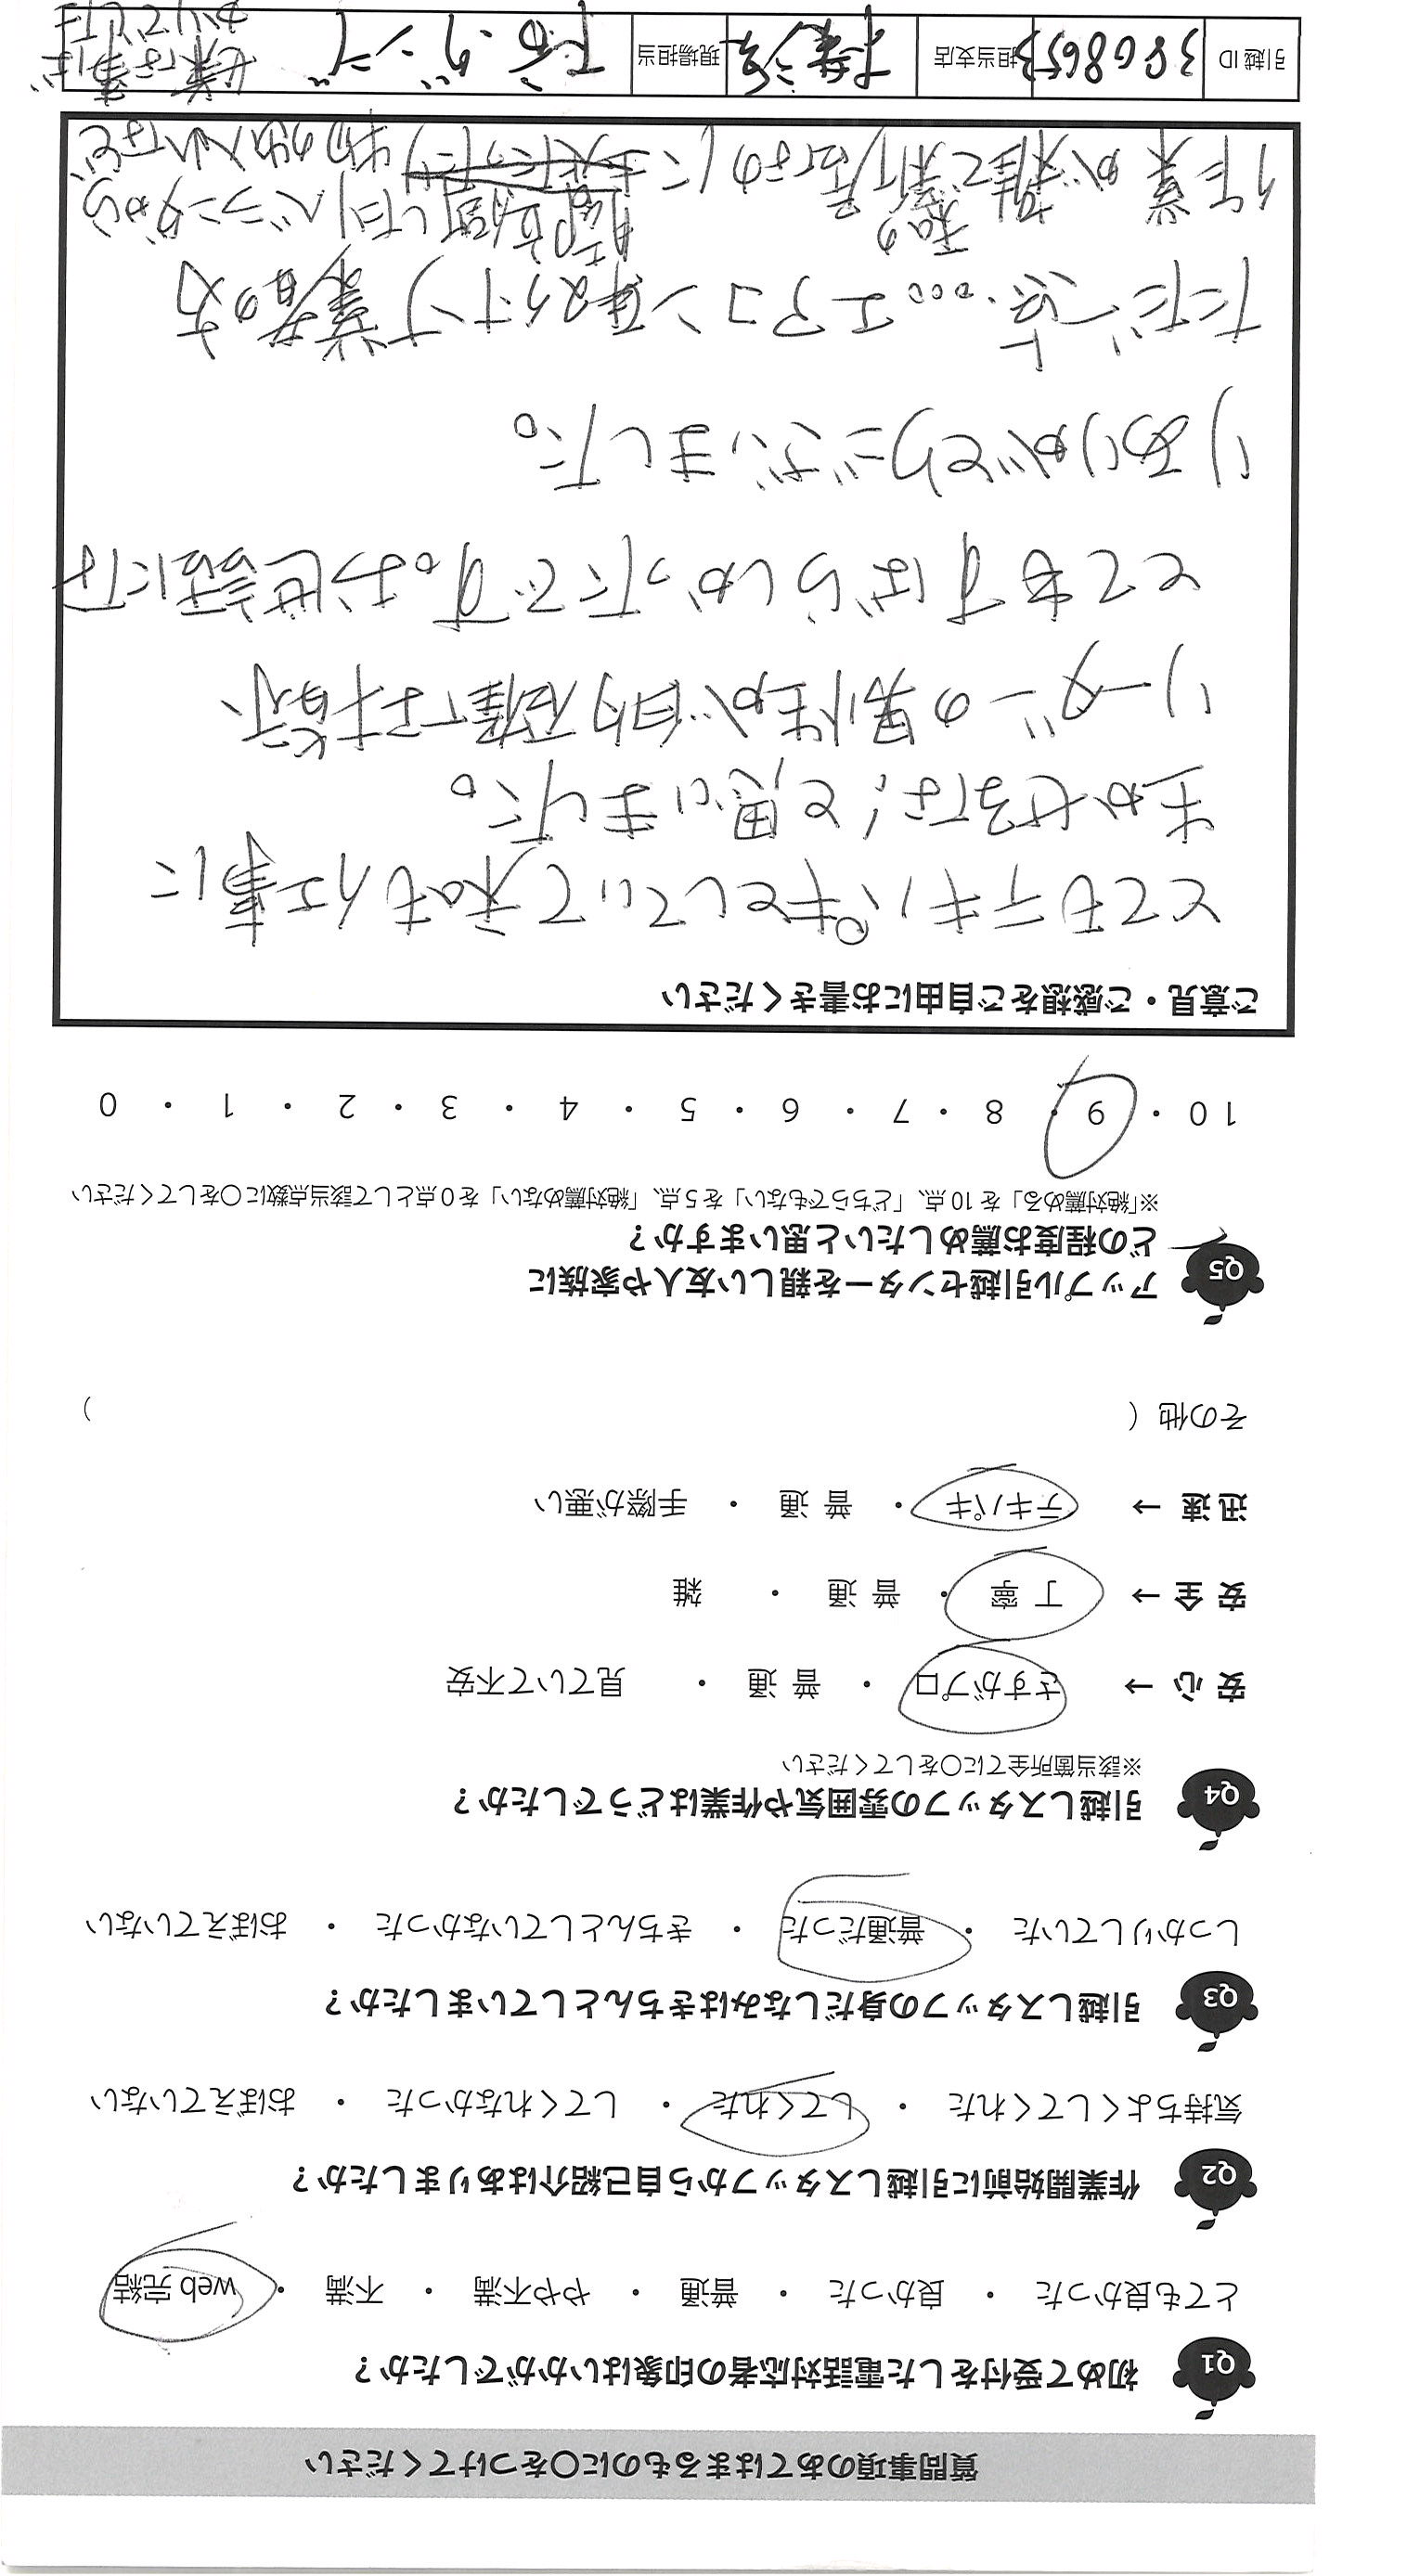 質問事項のあてはまるものに〇をつけてください
Q1 初めて受付をした電話対応者の印象はいかがでしたか？
とても良かった ・ 良かった ・ 普通 ・ やや不満 ・ 不満 ・ web完結
Q2 作業開始前に引越しスタッフから自己紹介はありましたか？
気持ちよくしてくれた ・ してくれた ・ してくれなかった ・ おぼえていない
Q3 引越しスタッフの身だしなみはきちんとしていましたか？
しっかりしていた ・ 普通だった ・ きちんとしていなかった ・ おぼえていない
Q4 引越しスタッフの雰囲気や作業はどうでしたか？
※該当箇所全てに〇をしてください
安 心 → さすがプロ ・ 普 通 ・ 見ていて不安
安 全 → 丁 寧 ・ 普 通 ・ 雑
迅 速 → テキパキ ・ 普 通 ・ 手際が悪い
その他（ ）
Q5 アップル引越センターを親しい友人や家族に
どの程度お薦めしたいと思いますか？
※「絶対薦める」を10点、「どちらでもない」を5点、「絶対薦めない」を0点として該当点数に〇をしてください
10 ・ 9 ・ 8 ・ 7 ・ 6 ・ 5 ・ 4 ・ 3 ・ 2 ・ 1 ・ 0
ご意見・ご感想をご自由にお書きください
とてもテキパキとしていて私も仕事に
まかせるな！と思いました。
リーダーの男性が的確で指示
とてもすばらしかったです。お世話にな
りありがとうございました。
ただ一点…。エアコン 業者の方
作業が雑で新居なのに 物の出入れなど
私の 部屋 したりベランダから
引越ID 3808653 担当支店 現場担当
作業は事ば
かりでした